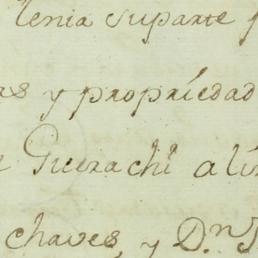 tenia suparte
y propriedad
Guerachi a
chaves, y D.n